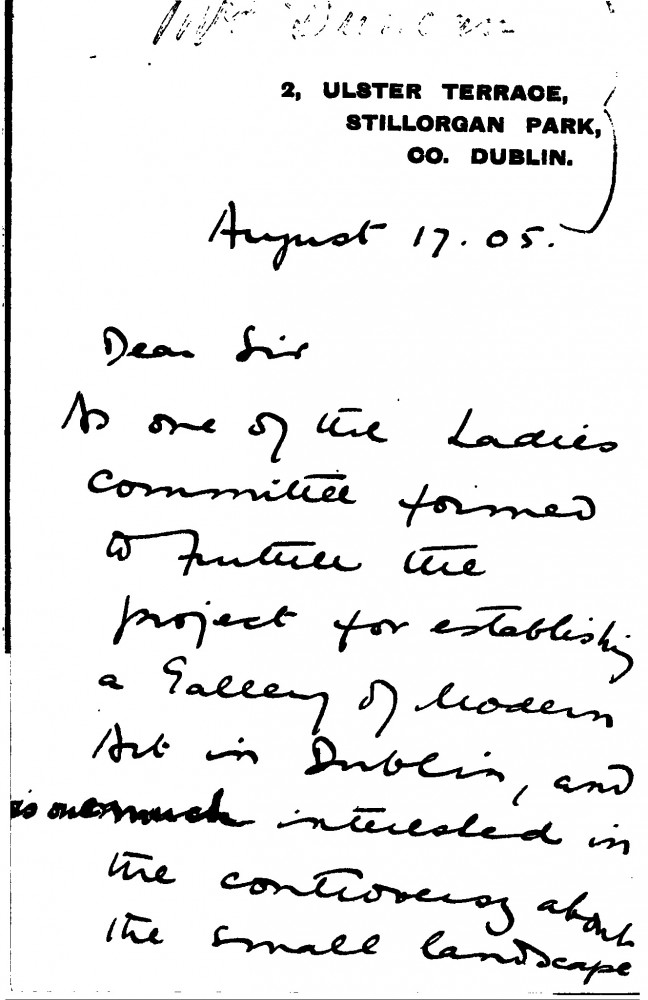 Mrs Duncan
2, ULSTER TERRACE,
STILLORGAN PARK,
CO. DUBLIN.
August 17.05.
Dear Sir
As one of the Ladies
committee formed
to further the
project for establishing
a Gallery of Modern
Art in Dublin, and
as one much interested in
the controversy about
the small landscape